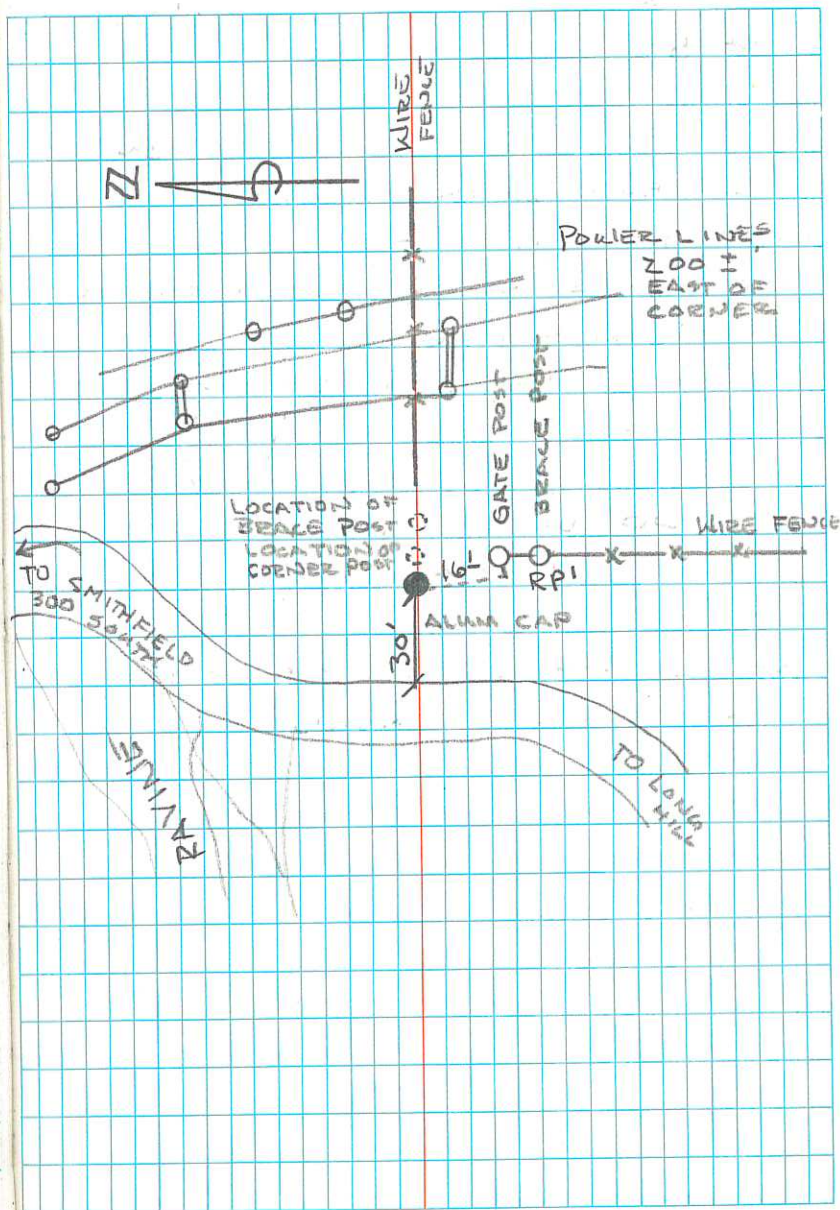 WIRE
FENCE
N
POWER LINES
200 ±'
EAST OF
CORNER
GATE POST
BRACE POST
LOCATION OF
BRACE POST
LOCATION OF
CORNER POST
WIRE FENCE
16'
RP1
TO
300
SMITHFIELD
SOUTH
30'
ALUM CAP
RAVINE
TO LONG
HILL